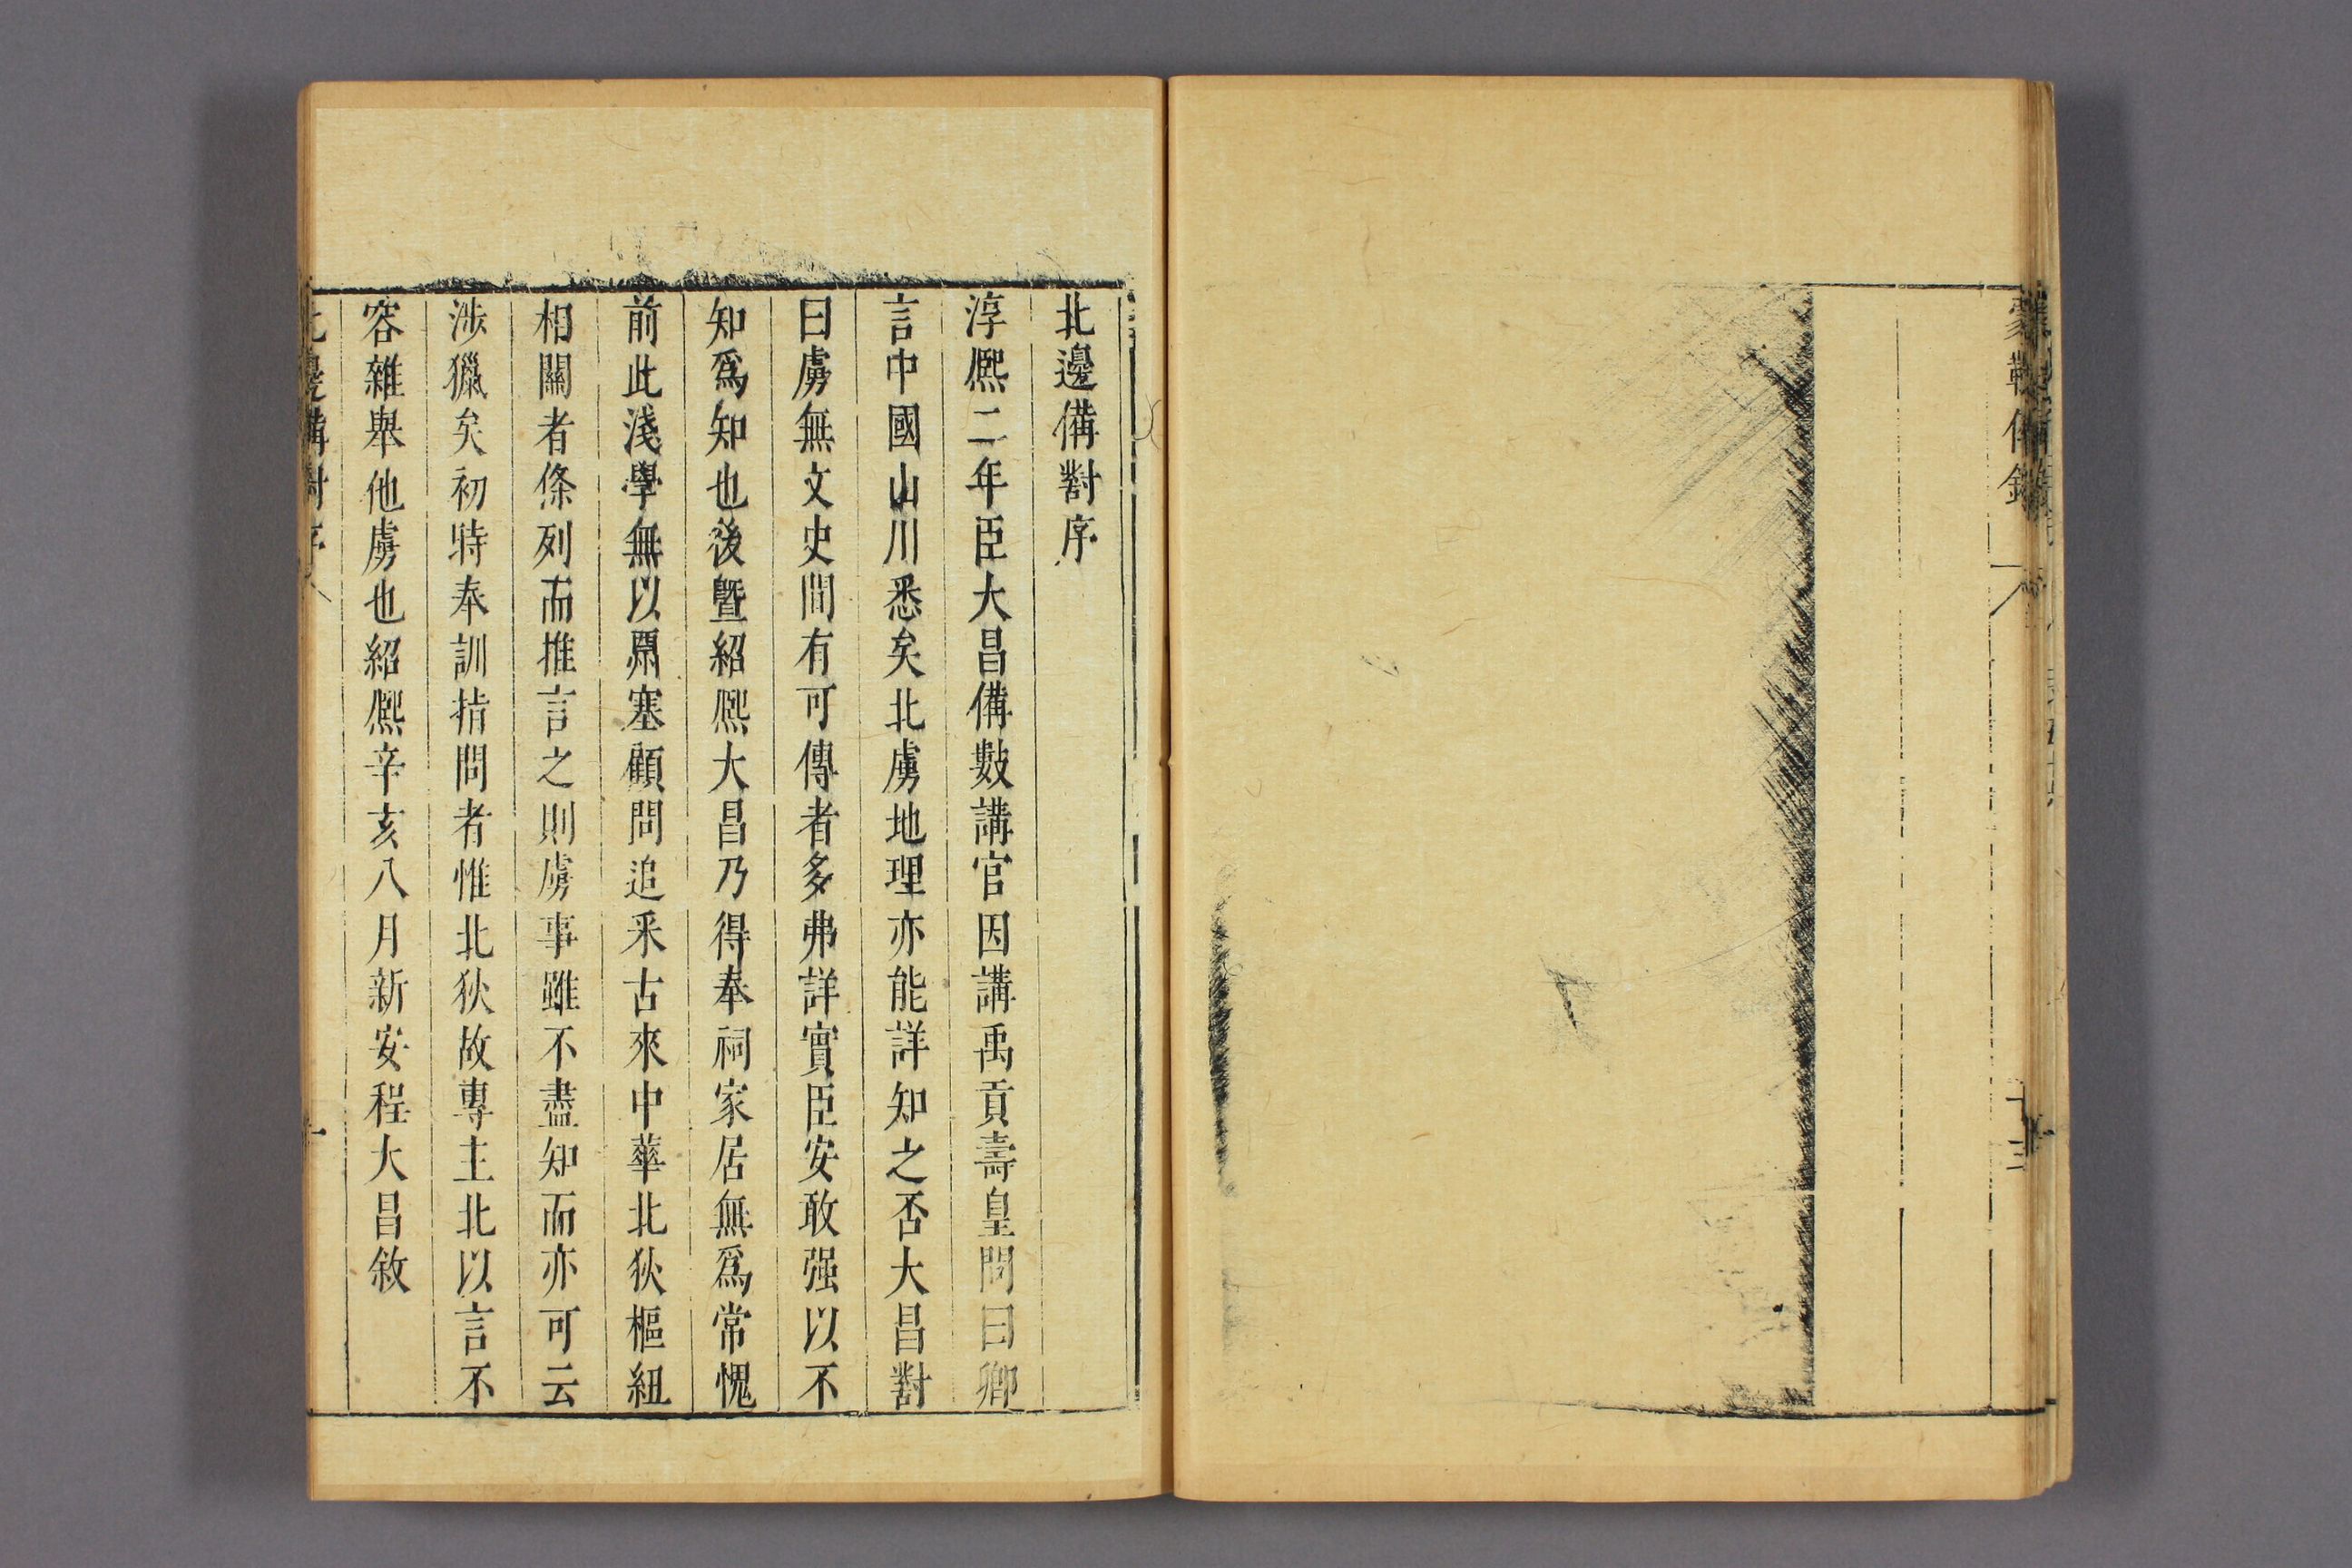 蒙韃備錄
十三
北邊備對序
淳熈二年臣大昌備數講官因講禹貢壽皇問曰卿
言中國山川悉矣北虜地理亦能詳知之否大昌對
曰虜無文史間有可傳者多弗詳實臣安敢强以不
知爲知也後曁紹熈大昌乃得奉祠家居無爲常愧
前此淺學無以𠫤塞顧問追釆古來中華北狄樞紐
相關者條列而推言之則虜事雖不盡知而亦可云
涉獵矣初特奉訓㨖問者惟北狄故專主北以言不
容雜舉他虜也紹熈辛亥八月新安程大昌敘
北邊備對序
一